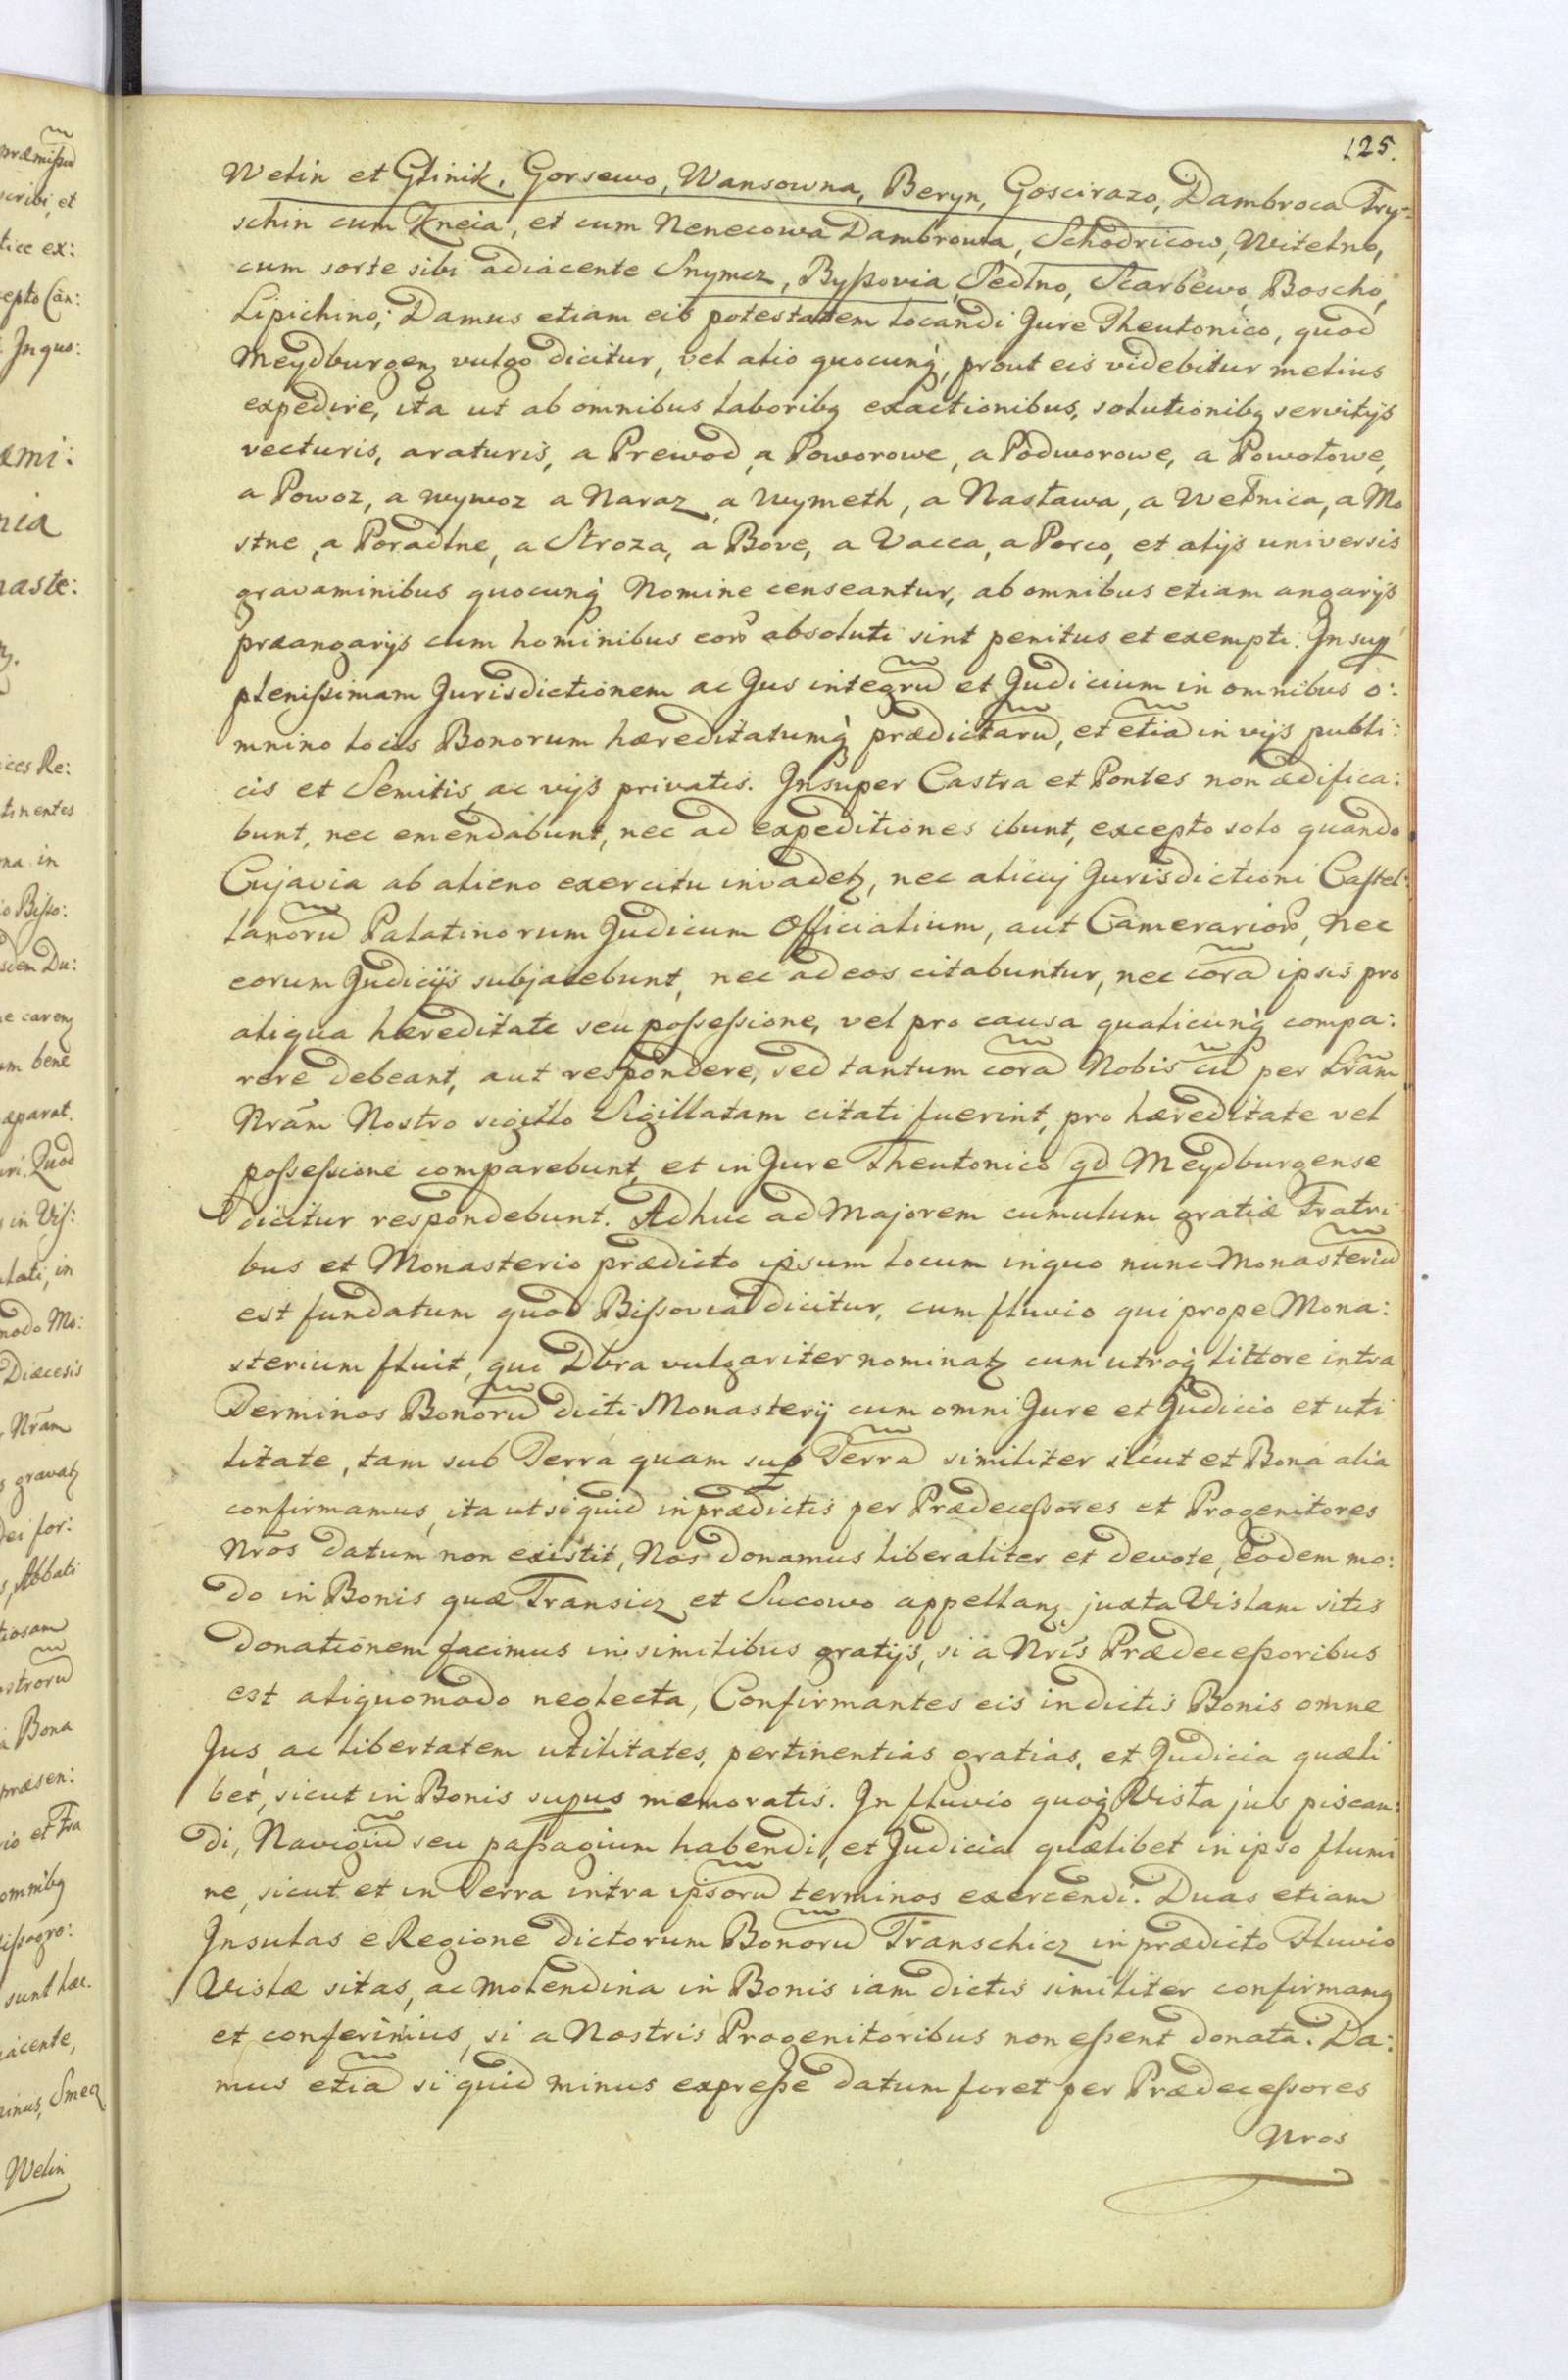 125.
Welin et Glinik, Gorsewo, Wansowna, Beryn, Goscirazo, Dambroca Try-
schin cum Kneia, et cum Nenecowa Dambrowa, Schodricow, Witelno,
cum sorte sibi adiacente Snymcz, Byssovia, Sedlno, Scarbewo, Boscho,
Lipichino; Damus etiam eis potestatem locandi Jure Theutonico, quod
Meydburgenȝ vulgo dicitur, vel alio quocunq̀, prout eis videbitur melius
expedire, ita ut ab omnibus laboribȝ exactionibus, solutionibȝ servitijs
vecturis, araturis, a Prewod, a Poworowe, a Podworowe, a Powolowe,
a Powoz, a wywoz a Naraz, a Wymeth, a Nastawa, a Wetnica, a Mo
stne, a Poradlne, a Stroza, a Bove, a Vacca, a Porco, et alijs universis
gravaminibus quocunq̀ Nomine censeantur, ab omnibus etiam angarijs
præangarijs cum hominibus eoꝝ absoluti sint penitus et exempti. In sup̱
plenissimam Jurisdictionem ac Jus integrũ et Judicium in omnibus o:
mnino locis Bonorum hæreditatumq̀ prædictarũ, et etiã in vijs publi:
cis et Semitis, ac vijs privatis. Insuper Castra et Pontes non ædifica:
bunt, nec emendabunt, nec ad expeditiones ibunt, excepto solo quando
Cujavia ab alieno exercitu invadetȝ, nec alicuj Jurisdictioni Castel:
lanorũ Palatinorum Judicum Officialium, aut Camerarioꝝ, nec
eorum Judicijs subjacebunt, nec ad eos citabuntur, nec corã ipsis pro
aliqua hæreditate seu possessione, vel pro causa qualicunq̀ compa:
rere debeant, aut respondere, sed tantum corã Nobis cũ per Lrãm
Nrãm Nostro sigillo Sigillatam citati fuerint, pro hæreditate vel
possessione comparebunt, et in Jure Theutonico qd Meydburgense
dicitur respondebunt. Adhuc ad Majorem cumulum gratiæ Fratri
bus et Monasterio prædicto ipsum locum in quo nunc Monasteriũ
est fundatum quod Bissovia dicitur, cum fluvio qui prope Mona:
sterium fluit, qui Dbra vulgariter nominatȝ cum utroq̀ littore intra
Terminos Bonorũ dicti Monasterij cum omni Jure et Judicio et uti
litate, tam sub Terra quam sup̱ Terrã similiter sicut et Bona alia
confirmamus, ita ut si quid in prædictis per Prædecessores et Progenitores
Nros datum non existit, Nos donamus liberaliter et devote, eodem mo:
do in Bonis quæ Transicz et Sucowo appellanȝ juxta Vislam sitis
donationem facimus in similibus gratijs, si a Nris Prædecessoribus
est aliquomodo neglecta, Confirmantes eis in dictis Bonis omne
Jus ac libertatem utilitates, pertinentias gratias, et Judicia quæli
bet, sicut in Bonis supus memoratis. In fluvio quoq̀ Visla jus piscan:
di, Navigiũ seu passagium habendi, et Judicia quælibet in ipso flumi
ne, sicut et in Terra intra ipsorũ terminos exercendi. Duas etiam
Insulas e Regione dictorum Bonorũ Transchicz in prædicto Fluvio
Vislæ sitas, ac molendina in Bonis iam dictis similiter confirmamȝ
et conferimus, si a Nostris Progenitoribus non essent donata. Da:
mus etiã si quid minus expresse datum foret per Prædecessores
Nros